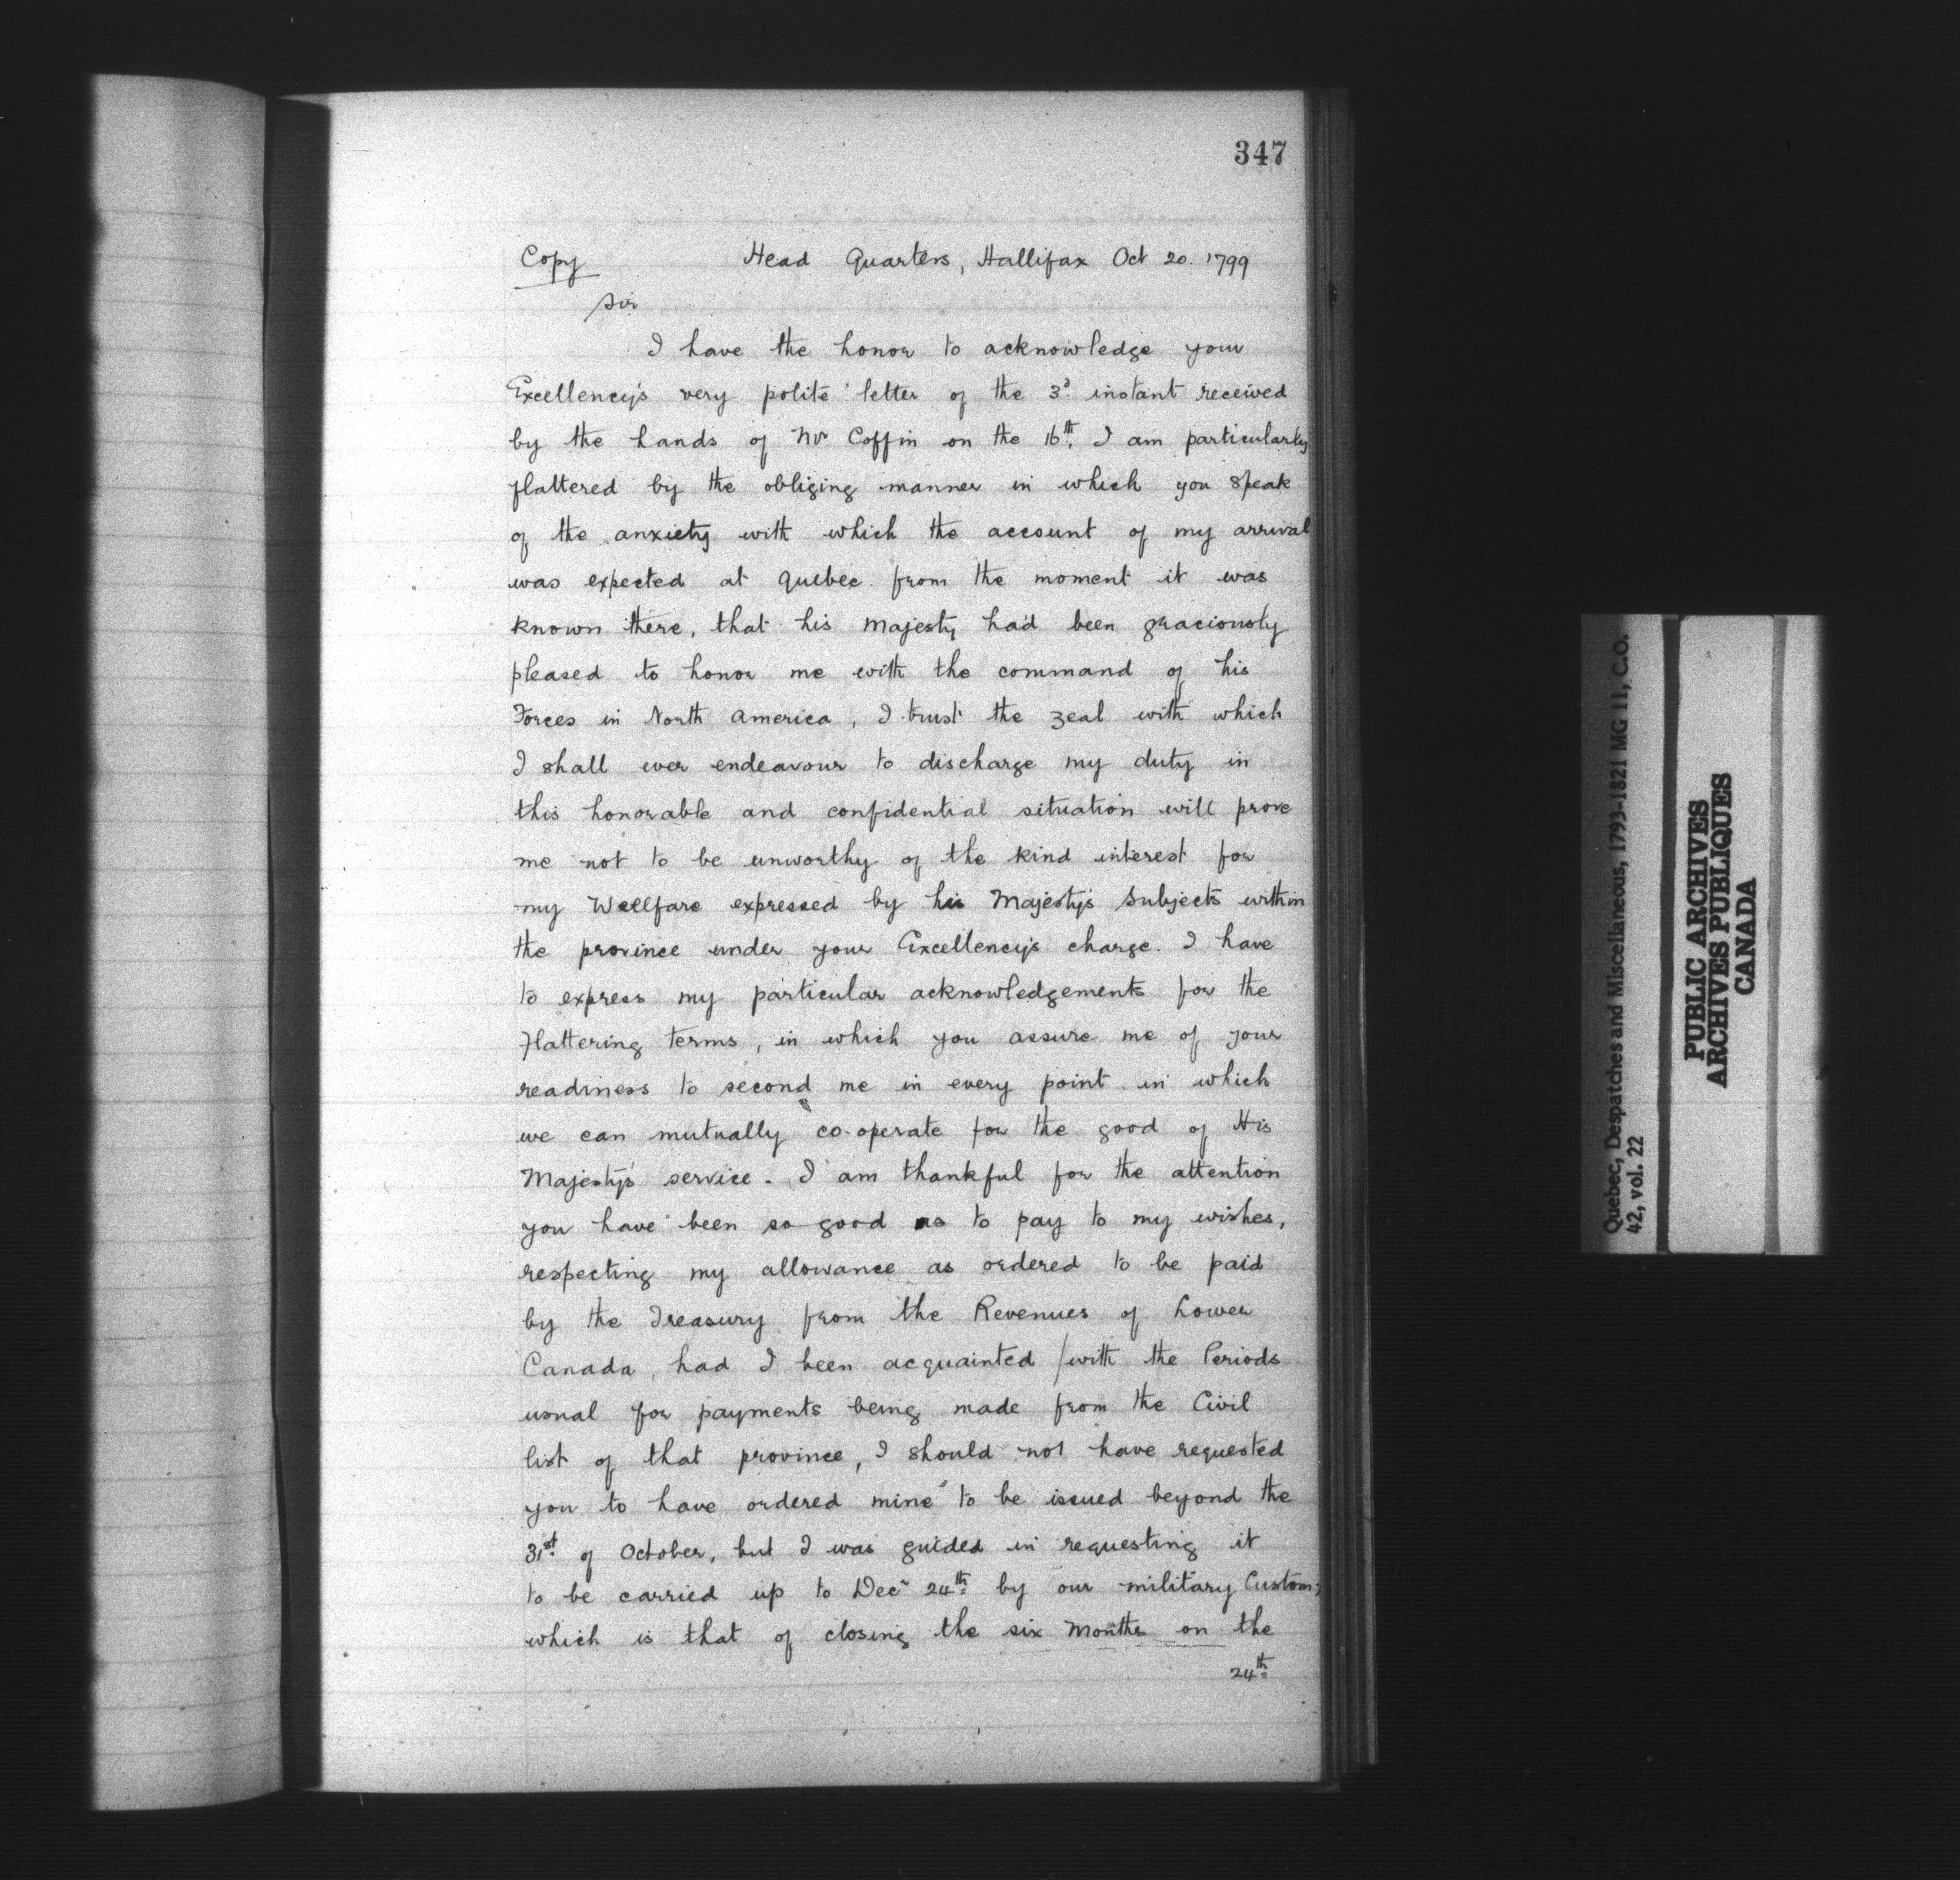 347
Copy Head Quarters, Hallifax Oct 20. 1799
Sir
I have the honor to acknowledge your
Excellency's very polite letter of the 3d. instant received
by the hands of Mr Coffin on the 16th. I am particularly
flattered by the obliging manner in which you speak
of the anxiety with which the account of my arrival
was expected at Quebec from the moment it was
known there, that his Majesty had been graciously
pleased to honor me with the command of his
Forces in North America, I trust the zeal with which
I shall ever endeavour to discharge my duty in
this honorable and confidential situation will prove
me not to be unworthy of the kind interest for
my Wellfare expressed by his Majesty's Subjects within
the province under your Excellency's charge. I have
to express my particular acknowledgements for the
flattering terms, in which you assure me of your
readiness to second me in every point in which
we can mutually co-operate for the good of His
Majesty's service. I am thankful for the attention
you have been so good as to pay to my wishes,
respecting my allowance as ordered to be paid
by the Treasury from the Revenues of Lower
Canada, had I been acquainted /with the Periods
usual for payments being made from the Civil
list of that province, I should not have requested
you to have ordered mine to be issued beyond the
31st. of October, but I was guided in requesting it
to be carried up to Decr 24th by our military Custom;
which is that of closing the six Months on the
24th
Quebec, Despatches and Miscellaneous, 1793-1821 MG 11, C.O.
42, vol. 22
PUBLIC ARCHIVES
ARCHIVES PUBLIQUES
CANADA